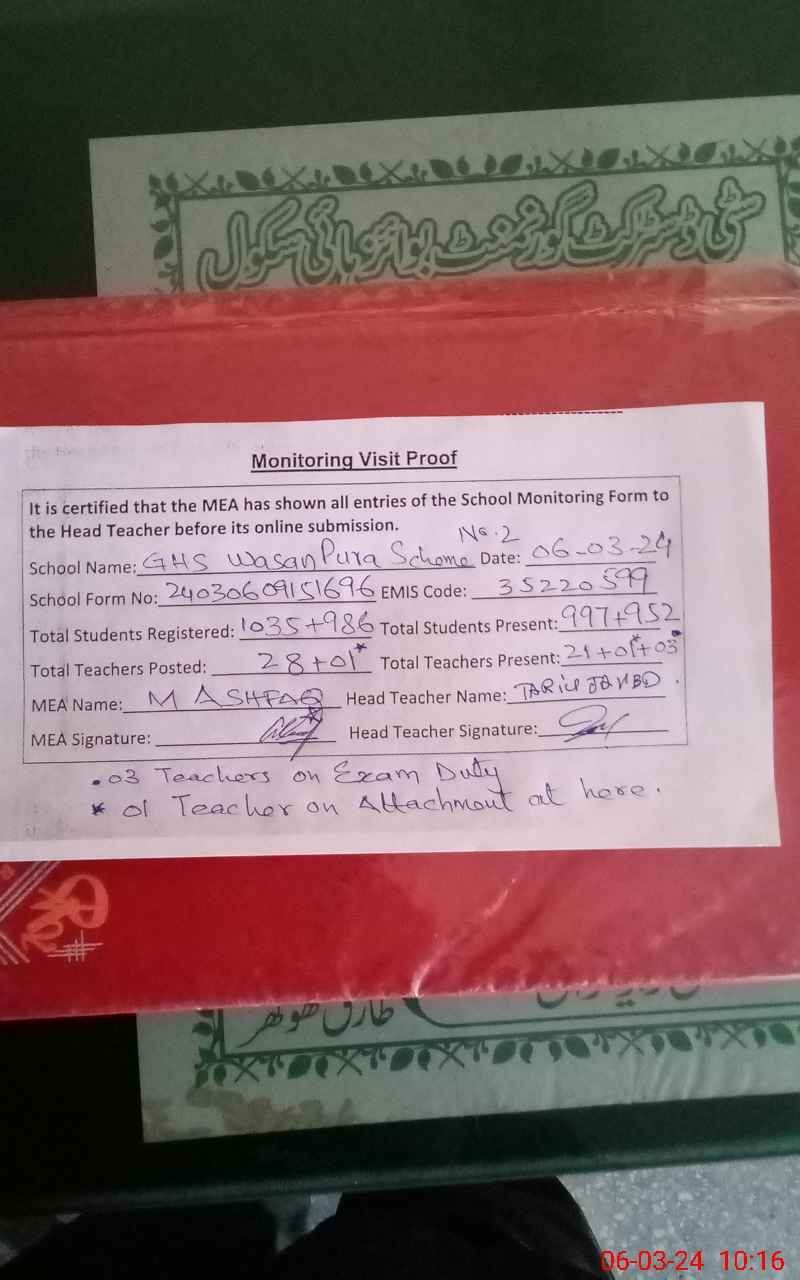 سٹی ڈسٹرکٹ گورنمنٹ بوائز ہائی سکول
Monitoring Visit Proof
It is certified that the MEA has shown all entries of the School Monitoring Form to
the Head Teacher before its online submission.
School Name: GHS Wasan Pura Scheme No.2 Date: 06-03-24
School Form No: 24030609151696 EMIS Code: 35220599
Total Students Registered: 1035+986 Total Students Present: 997+952
Total Teachers Posted: 28+01* Total Teachers Present: 21+01*+03•
MEA Name: M ASHFAQ Head Teacher Name: TARIQ
MEA Signature: Head Teacher Signature:
• 03 Teachers on Exam Duty
* 01 Teacher on Attachment at here.
طارق
06-03-24 10:16